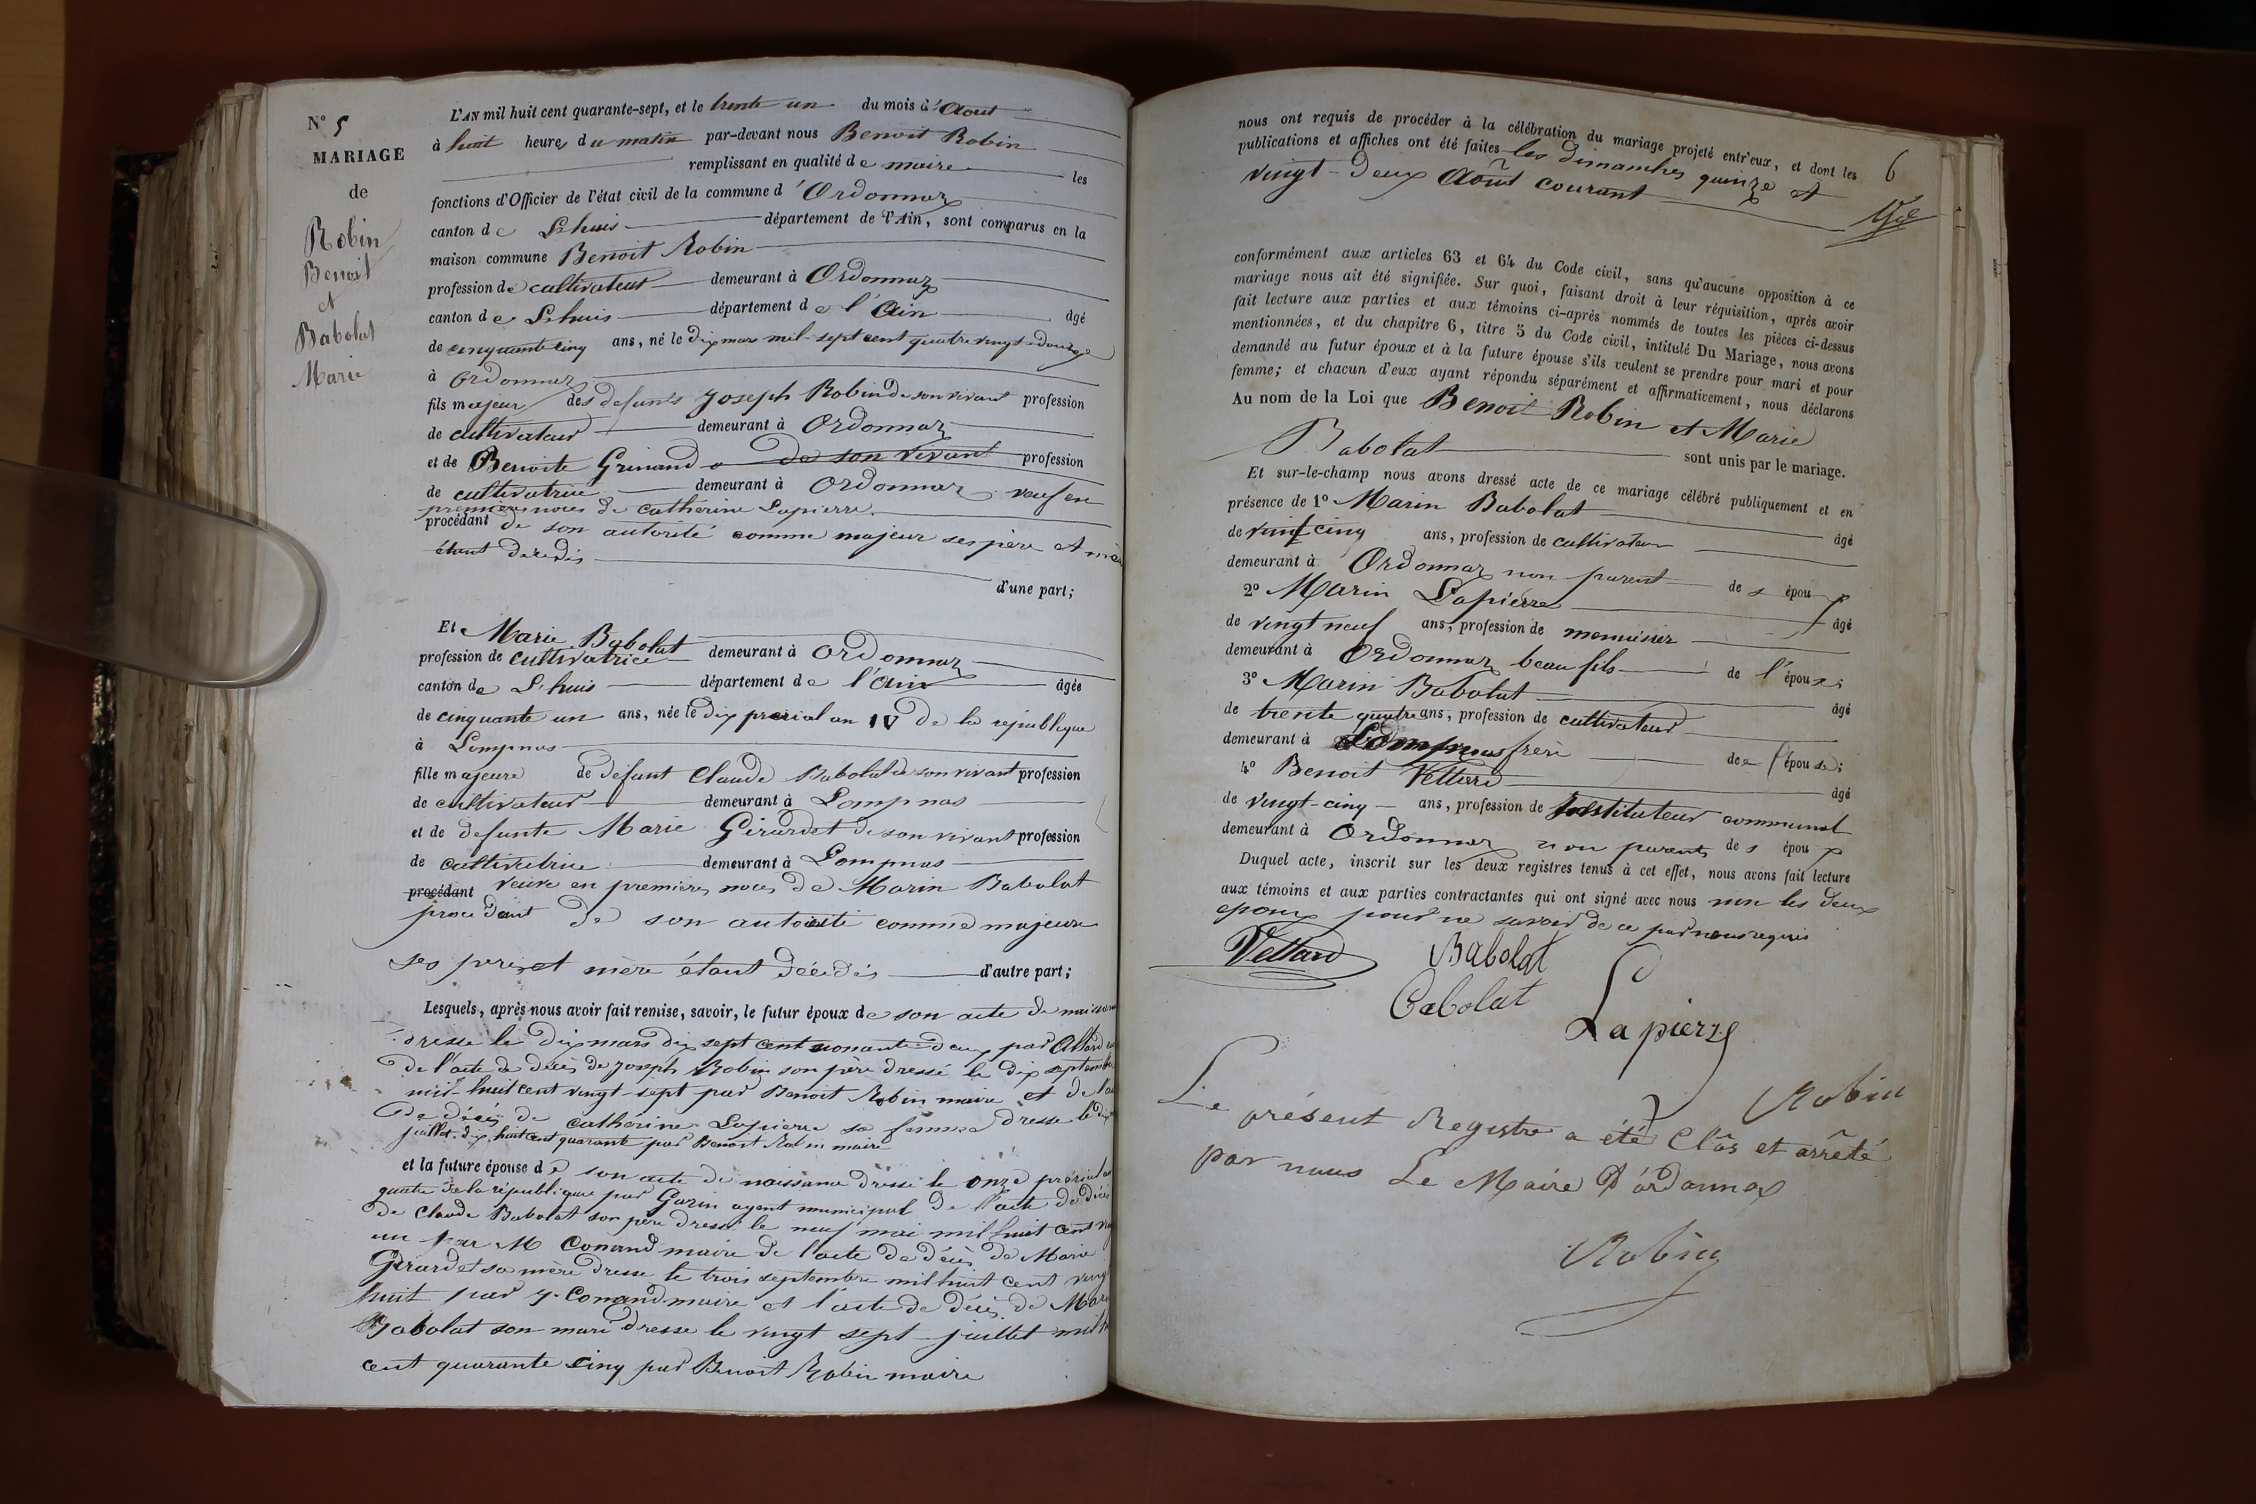 N° 5
MARIAGE
de
Robin
Benoit
et
Babolat
Marie
L'AN mil huit cent quarante-sept, et le trente un du mois d'Aout
à huit heures du matin par-devant nous Benoit Robin
remplissant en qualité de maire les
fonctions d'Officier de l'état civil de la commune d'Ordonnaz
canton de Lhuis département de l'Ain, sont comparus en la
maison commune Benoit Robin
profession de cultivateur demeurant à Ordonnaz
canton de Lhuis département de l'Ain âgé
de cinquante cinq ans, né le dix mars mil sept cent quatre vingt douze
à Ordonnaz
fils majeur des defunts Joseph Robin de son vivant profession
de cultivateur demeurant à Ordonnaz
et de Benoite Grinand de son vivant profession
de cultivatrice demeurant à Ordonnaz veuf en
premières noces de Catherine Lapierre
procédant de son autorité comme majeur ses père et mère
étant decedés
d'une part;
Et Marie Babolat
profession de cultivatrice demeurant à Ordonnaz
canton de Lhuis département de l'Ain âgée
de cinquante un ans, née le dix prerial an IV de la republique
à Lompnas
fille majeure de défunt Claude Babolat de son vivant profession
de cultivateur demeurant à Lompnas
et de defunte Marie Girardet de son vivant profession
de cultivatrice demeurant à Lompnas
procédant veuve en premières noces de Marin Babolat
procedant de son autorité comme majeure
ses père et mère étant décedés d'autre part;
Lesquels, après nous avoir fait remise, savoir, le futur époux de son acte de naissance
dresse le dix mars dix sept cent nonante deux par Allard
de l'acte de décès de Joseph Robin son père dressé le dix septembre
mil huit cent vingt sept par Benoit Robin maire et de l'acte
de décès de Catherine Lapierre sa femme dresse le dix
juillet dix huit cent quarante par Benoit Robin maire
et la future épouse de son acte de naissance dressé le onze prérial an
quatre de la république par Garin agent municipal de l'acte de décès
de Claude Babolat son père dressé le neuf mai mil huit cent vingt
un par M Conand maire de l'acte de décès de Marie
Girardet sa mère dresse le trois septembre mil huit cent vingt
huit par J. Conand maire et l'acte de décès de Marin
Babolat son mari dresse le vingt sept juillet mil h
cent quarante cinq par Benoit Robin maire
6
nous ont requis de procéder à la célébration du mariage projeté entr'eux, et dont les
publications et affiches ont été faites les dimanches quinze et
vingt-deux Août courant
conformément aux articles 63 et 64 du Code civil, sans qu'aucune opposition à ce
mariage nous ait été signifiée. Sur quoi, faisant droit à leur réquisition, après avoir
fait lecture aux parties et aux témoins ci-après nommés de toutes les pièces ci-dessus
mentionnées, et du chapitre 6, titre 5 du Code civil, intitulé Du Mariage, nous avons
demandé au futur époux et à la future épouse s'ils veulent se prendre pour mari et pour
femme; et chacun d'eux ayant répondu séparément et affirmativement, nous déclarons
Au nom de la Loi que Benoit Robin et Marie
Babolat sont unis par le mariage.
Et sur-le-champ nous avons dressé acte de ce mariage célébré publiquement et en
présence de 1° Marin Babolat âgé
de cinq ans, profession de cultivateur
demeurant à Ordonnaz non parent des époux
2° Marin Lapierre âgé
de vingt neuf ans, profession de menuisier
demeurant à Ordonnaz beau fils de l'épouse;
3° Marin Babolat âgé
de trente quatre ans, profession de cultivateur
demeurant à Lompnas frère de l'épouse;
4° Benoit Vettard âgé
de vingt-cinq ans, profession de Instituteur communal
demeurant à Ordonnaz non parents des époux
Duquel acte, inscrit sur les deux registres tenus à cet effet, nous avons fait lecture
aux témoins et aux parties contractantes qui ont signé avec nous non les deux
epoux pour ne savoir de ce par nous requis
Vettard Babolat
Babolat Lapierre
Robin
Le présent Registre a été Clos et arrêté
par nous Le Maire d'ordonnaz
Robin